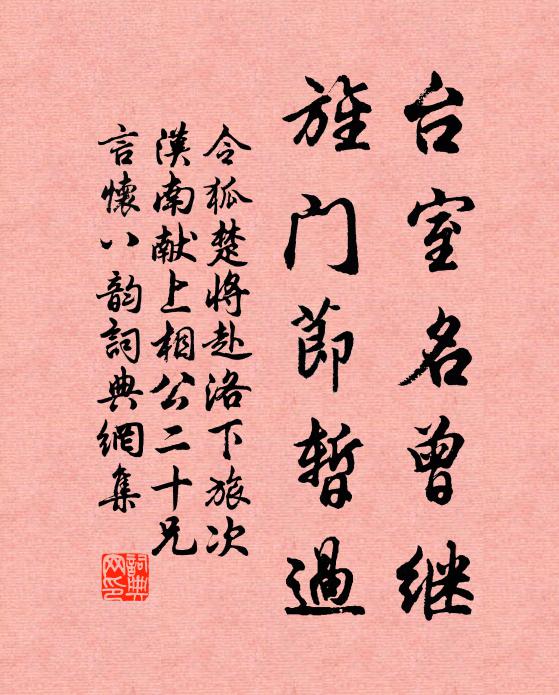 台室名曾继
旌门节暂過
令狐楚将赴洛下旅次
漢南献上相公二十兄
言懷八韵詞典網集
詞典網印